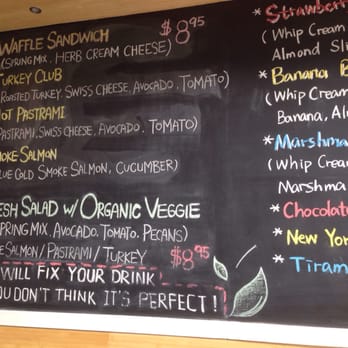 WAFFLE SANDWICH $8.95
(SPRING MIX, HERB CREAM CHEESE)
TURKEY CLUB
ROASTED TURKEY, SWISS CHEESE, AVOCADO, TOMATO)
HOT PASTRAMI
PASTRAMI, SWISS CHEESE, AVOCADO, TOMATO)
SMOKE SALMON
BLUE GOLD SMOKE SALMON, CUCUMBER)
ESH SALAD W/ ORGANIC VEGGIE
SPRING MIX, AVOCADO, TOMATO, PECANS)
SALMON / PASTRAMI / TURKEY $8.95
WILL FIX YOUR DRINK
YOU DON'T THINK IT'S PERFECT!
* Strawberr
( Whip Cream
Almond Sli
* Banana B
(Whip Cream
Banana, Al
* Marshma
(Whip Crea
Marshma
* Chocolat
* New Yor
* Tiram